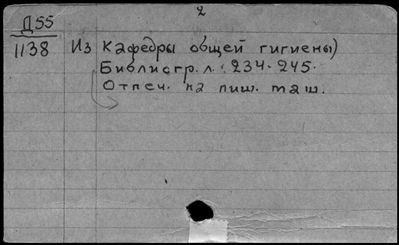 2
Д 55
1138
Из кафедры общей гигиены)
Библиогр. л. 234-245.
Отпеч. на пиш. маш.